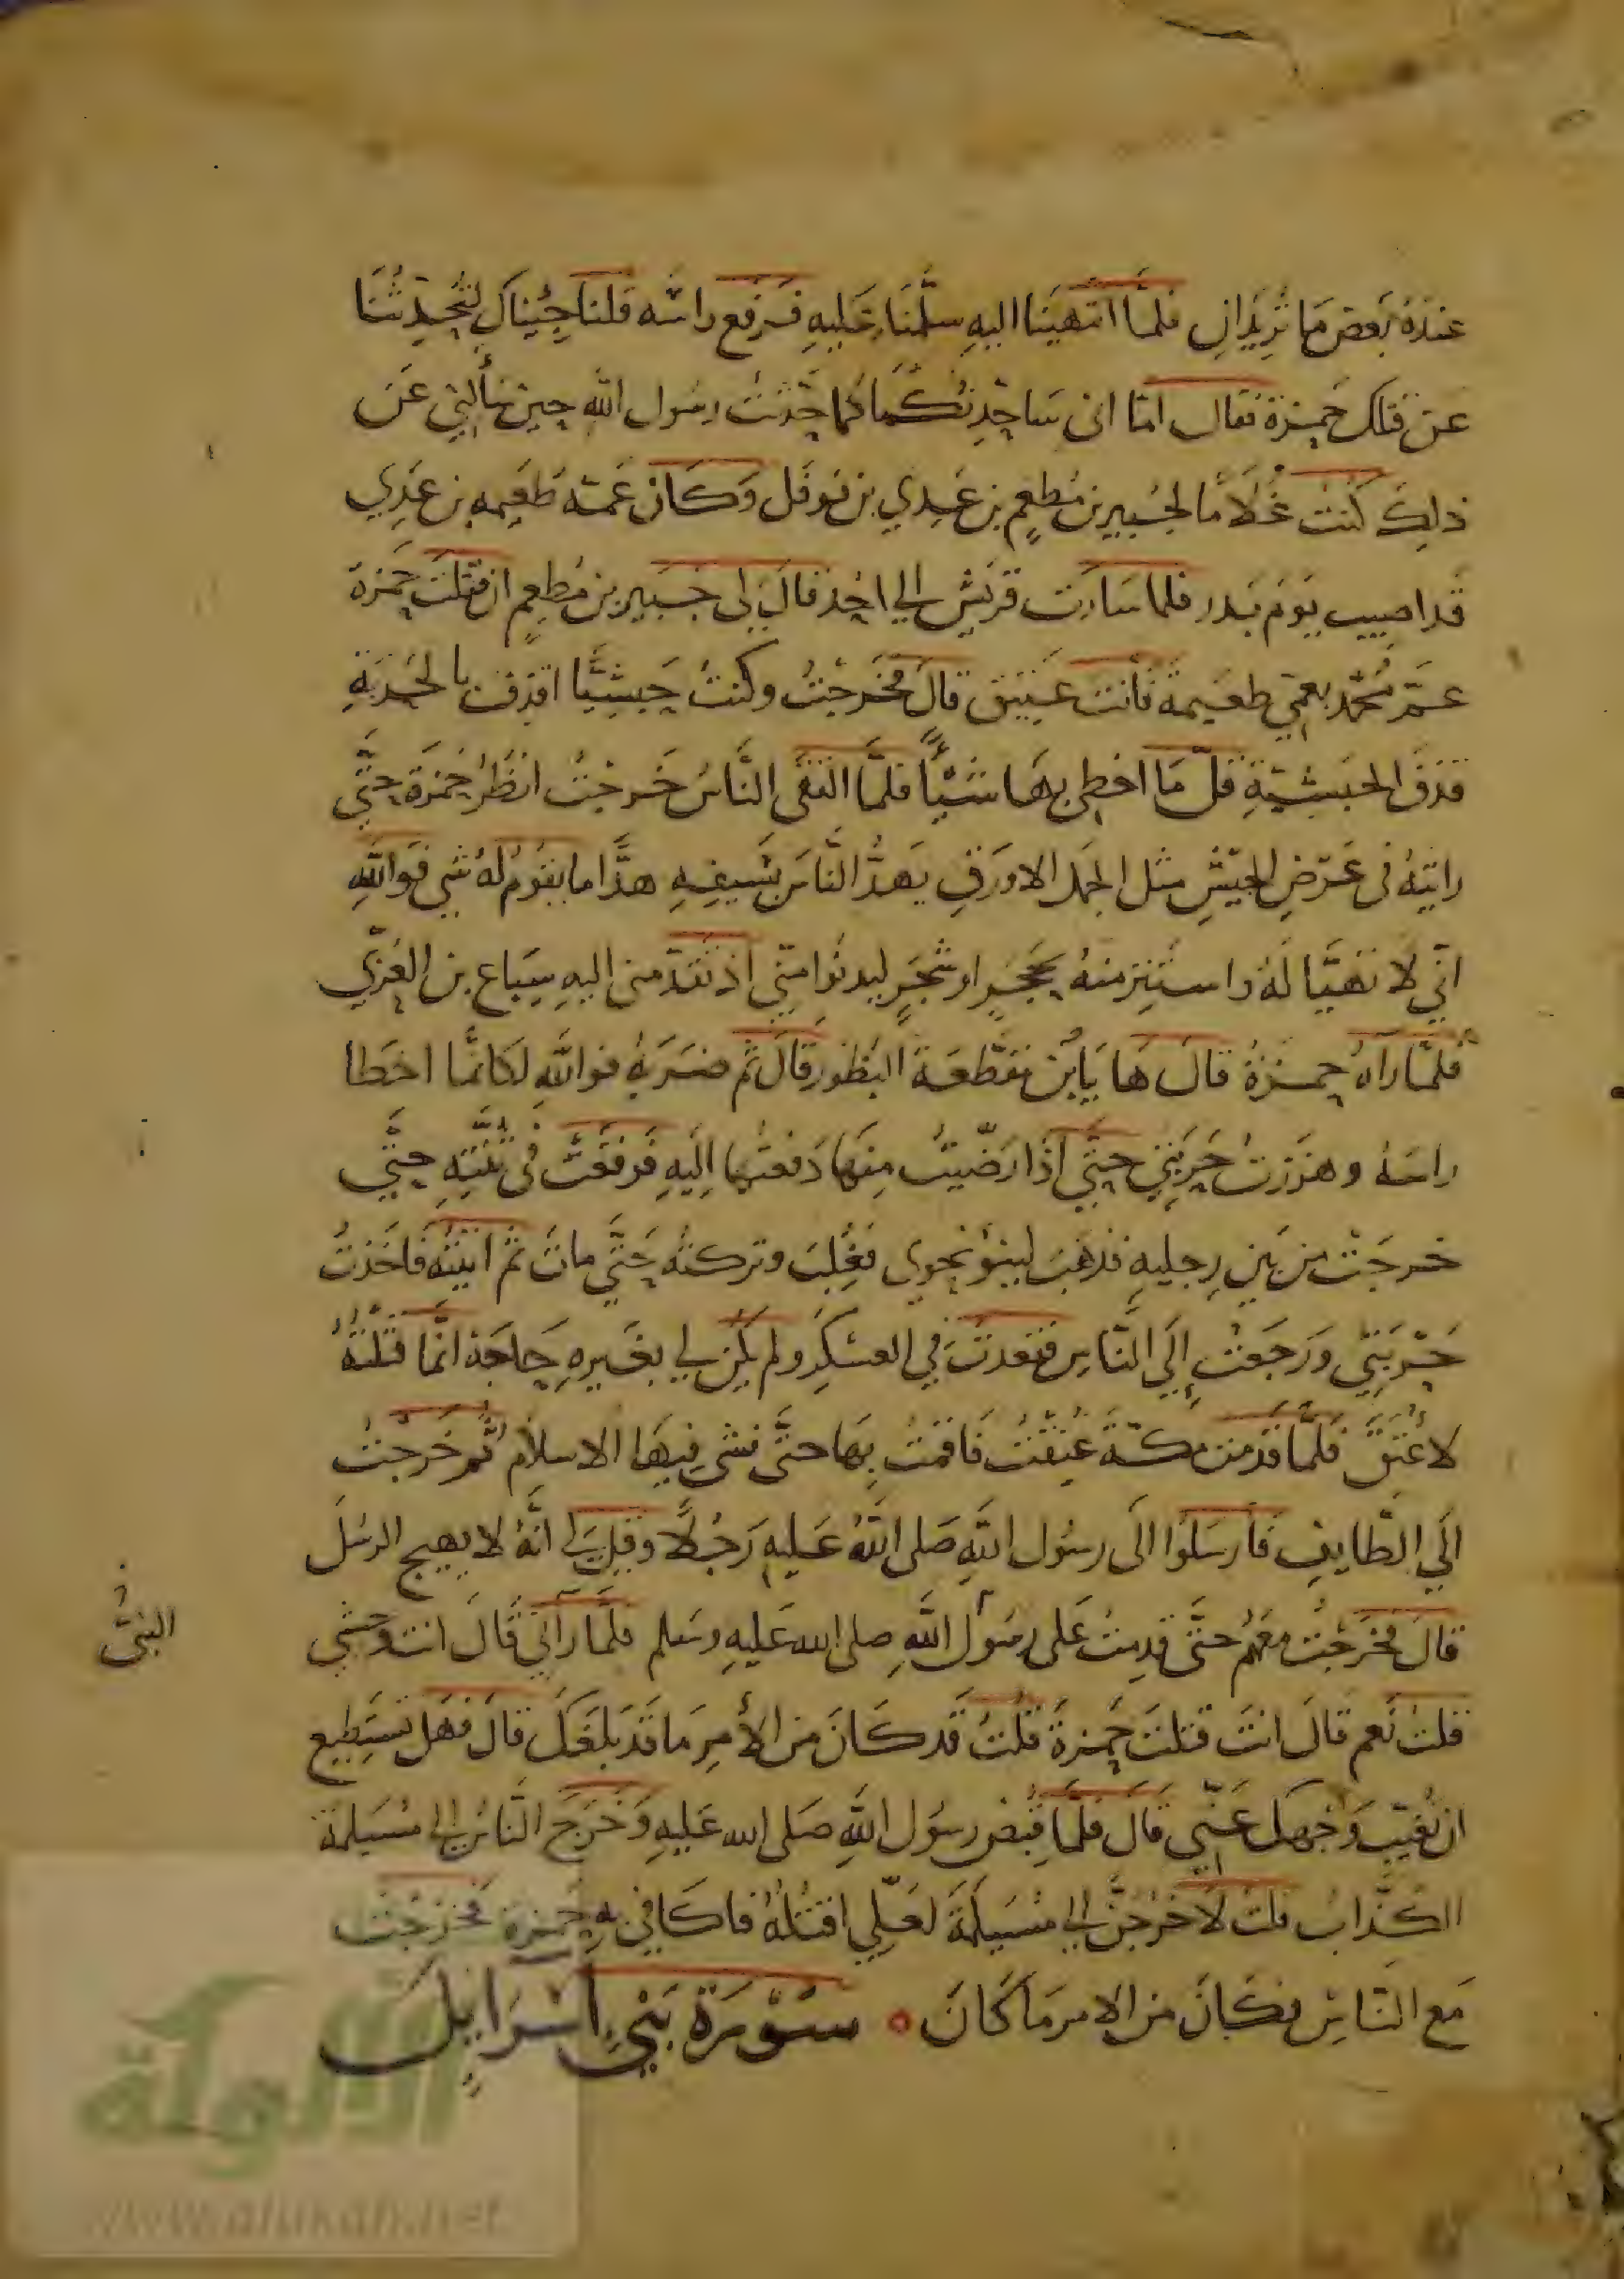 عنده بعض ما تريدان فلما انتهينا اليه سلمنا عليه فرفع راسه قلنا جيناك لتحدثنا
عن قتلك حمزة فقال اما اني ساحدثكما كما حدثت رسول الله حين سألني عن
ذلك كنت غلاما لجبير بن مطعم بن عدي بن نوفل وكان عمه طعيمه بن عدي
قد اصيب يوم بدر فلما سارت قريش الى احد قال لى جبير بن مطعم ان قتلت حمزة
عم محمد بعمي طعيمة فأنت عتيق قال فخرجت وكنت حبشيا اقذف بالحربة
قذف الحبشية قل ما اخطى بها شيأ فلما التقى الناس خرجت انظر حمزة حتى
رايته فى عرض الجيش مثل الجمل الاورق يهد الناس بسيفه هدا ما يقوم له شي فوالله
اني لا تهيا له واستتر منه بحجر او شجر ليدنوا مني اذ تقدمنى اليه سباع بن العزي
فلما راه حمزة قال ها يابن مقطعة البظور قال ثم ضربه فوالله لكانما اخطا
راسه وهززت حربتي حتى اذا رضيت منها دفعتها اليه فوقعت فى ثنته حتى
خرجت من بين رجليه فذهب لينؤ نحوى فغلب وتركته حتى مات ثم اتيته فاخذت
حربتي ورجعت الى الناس فقعدت في العسكر ولم يكن لي بغيره حاجة انما قتلته
لاعتق فلما قدمت مكة عتقت فاقمت بها حتى فشى فيها الاسلام ثم خرجت
الى الطايف فارسلوا الى رسول الله صلى الله عليه رجلا وقيل لى انه لا يهيج الرسل
قال فخرجت معهم حتى قدمت على رسول الله صلى الله عليه وسلم فلما رآني قال انت وحشي
النبي
قلت نعم قال انت قتلت حمزة قلت قد كان من الأمر ما قد بلغك قال فهل تستطيع
ان تغيب وجهك عني قال فلما قبض رسول الله صلى الله عليه وخرج الناس الى مسيلمة
الكذاب قلت لأخرجن الى مسيلمة لعلي اقتله فاكافي به حمزة فخرجت
مع الناس فكان من الامر ما كان ه سورة بني اسرايل
الألوكة
www.alukah.net